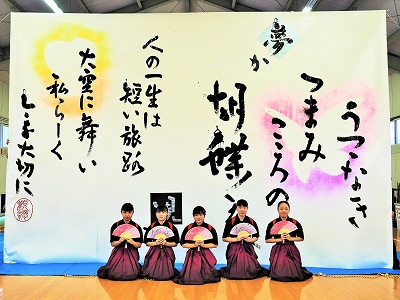 うつなき
つまみ
こころの
胡蝶か
夢か
人の一生は
短い旅路
大空に舞い
私らしく
大切に